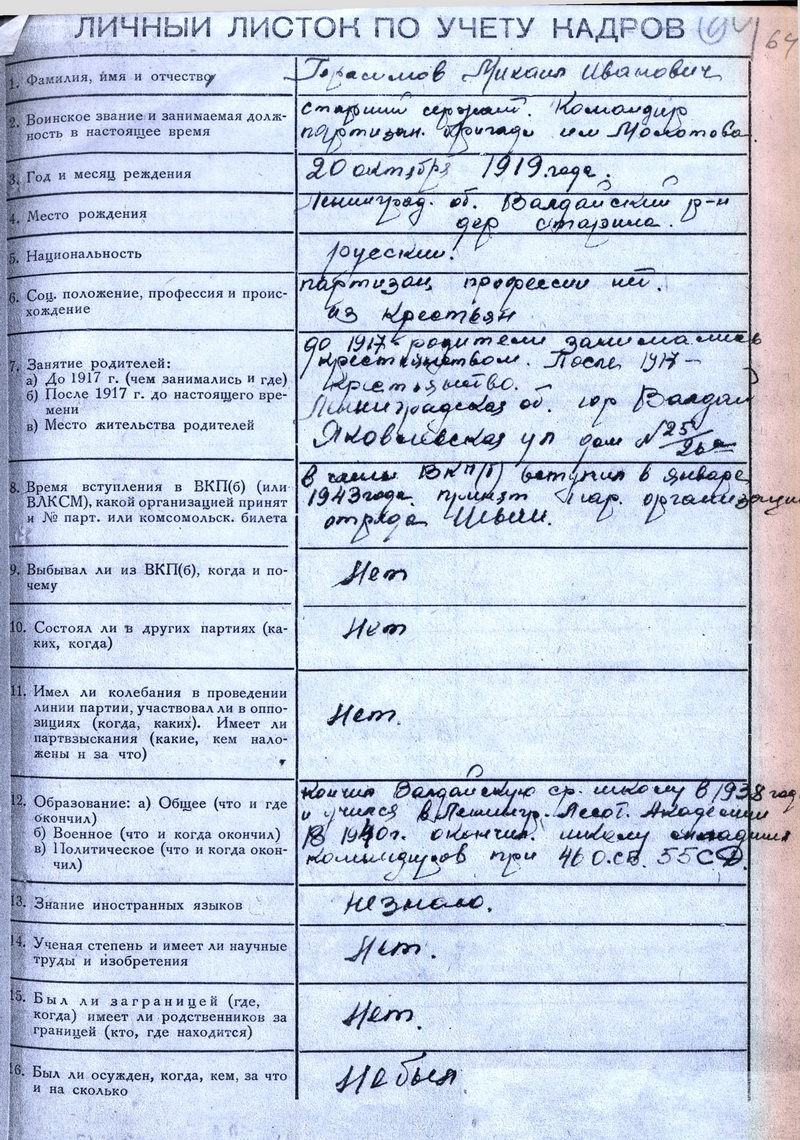 ЛИЧНЫЙ ЛИСТОК ПО УЧЕТУ КАДРОВ
64
1. Фамилия, имя и отчество
Герасимов Михаил Иванович
2. Воинское звание и занимаемая долж-
ность в настоящее время
старший сержант. Командир
партизан. бригады им Молотова
3. Год и месяц реждения
20 октября 1919 года.
4. Место рождения
Ленинград. об. Валдайский р-н
дер старина.
5. Национальность
русский.
6. Соц. положение, профессия и проис-
хождение
партизан, профессии нет.
из крестьян
7. Занятие родителей:
а) До 1917 г. (чем занимались и где)
б) После 1917 г. до настоящего вре-
мени
в) Место жительства родителей
до 1917 родители занимались
крестьянством. После 1917 –
крестьянство.
Ленинградская об. гор Валдай
Яковлевская ул дом №25/
8. Время вступления в ВКП(б) (или
ВЛКСМ), какой организацией принят
и № парт. или комсомольск. билета
в члены ВКП(б) вступил в январе
1943 года. принят пар. организации
отряда
9. Выбывал ли из ВКП(б), когда и по-
чему
Нет
10. Состоял ли в других партиях (ка-
ких, когда)
Нет
11. Имел ли колебания в проведении
линии партии, участвовал ли в оппо-
зициях (когда, каких). Имеет ли
партвзыскания (какие, кем нало-
жены н за что)
Нет.
12. Образование: а) Общее (что и где
окончил)
б) Военное (что и когда окончил)
в) Политическое (что и когда окон-
чил)
Кончил Валдайскую ср. школу в 1938 год
и учился в Ленингр. Лесот. Академии
В 1940г. окончил. школу младших
командиров при 46 О.СБ. 55 СД.
13. Знание иностранных языков
не знаю.
14. Ученая степень и имеет ли научные
труды и изобретения
Нет.
15. Был ли заграницей (где,
когда) имеет ли родственников за
границей (кто, где находится)
Нет.
16. Был ли осужден, когда, кем, за что
и на сколько
Не был